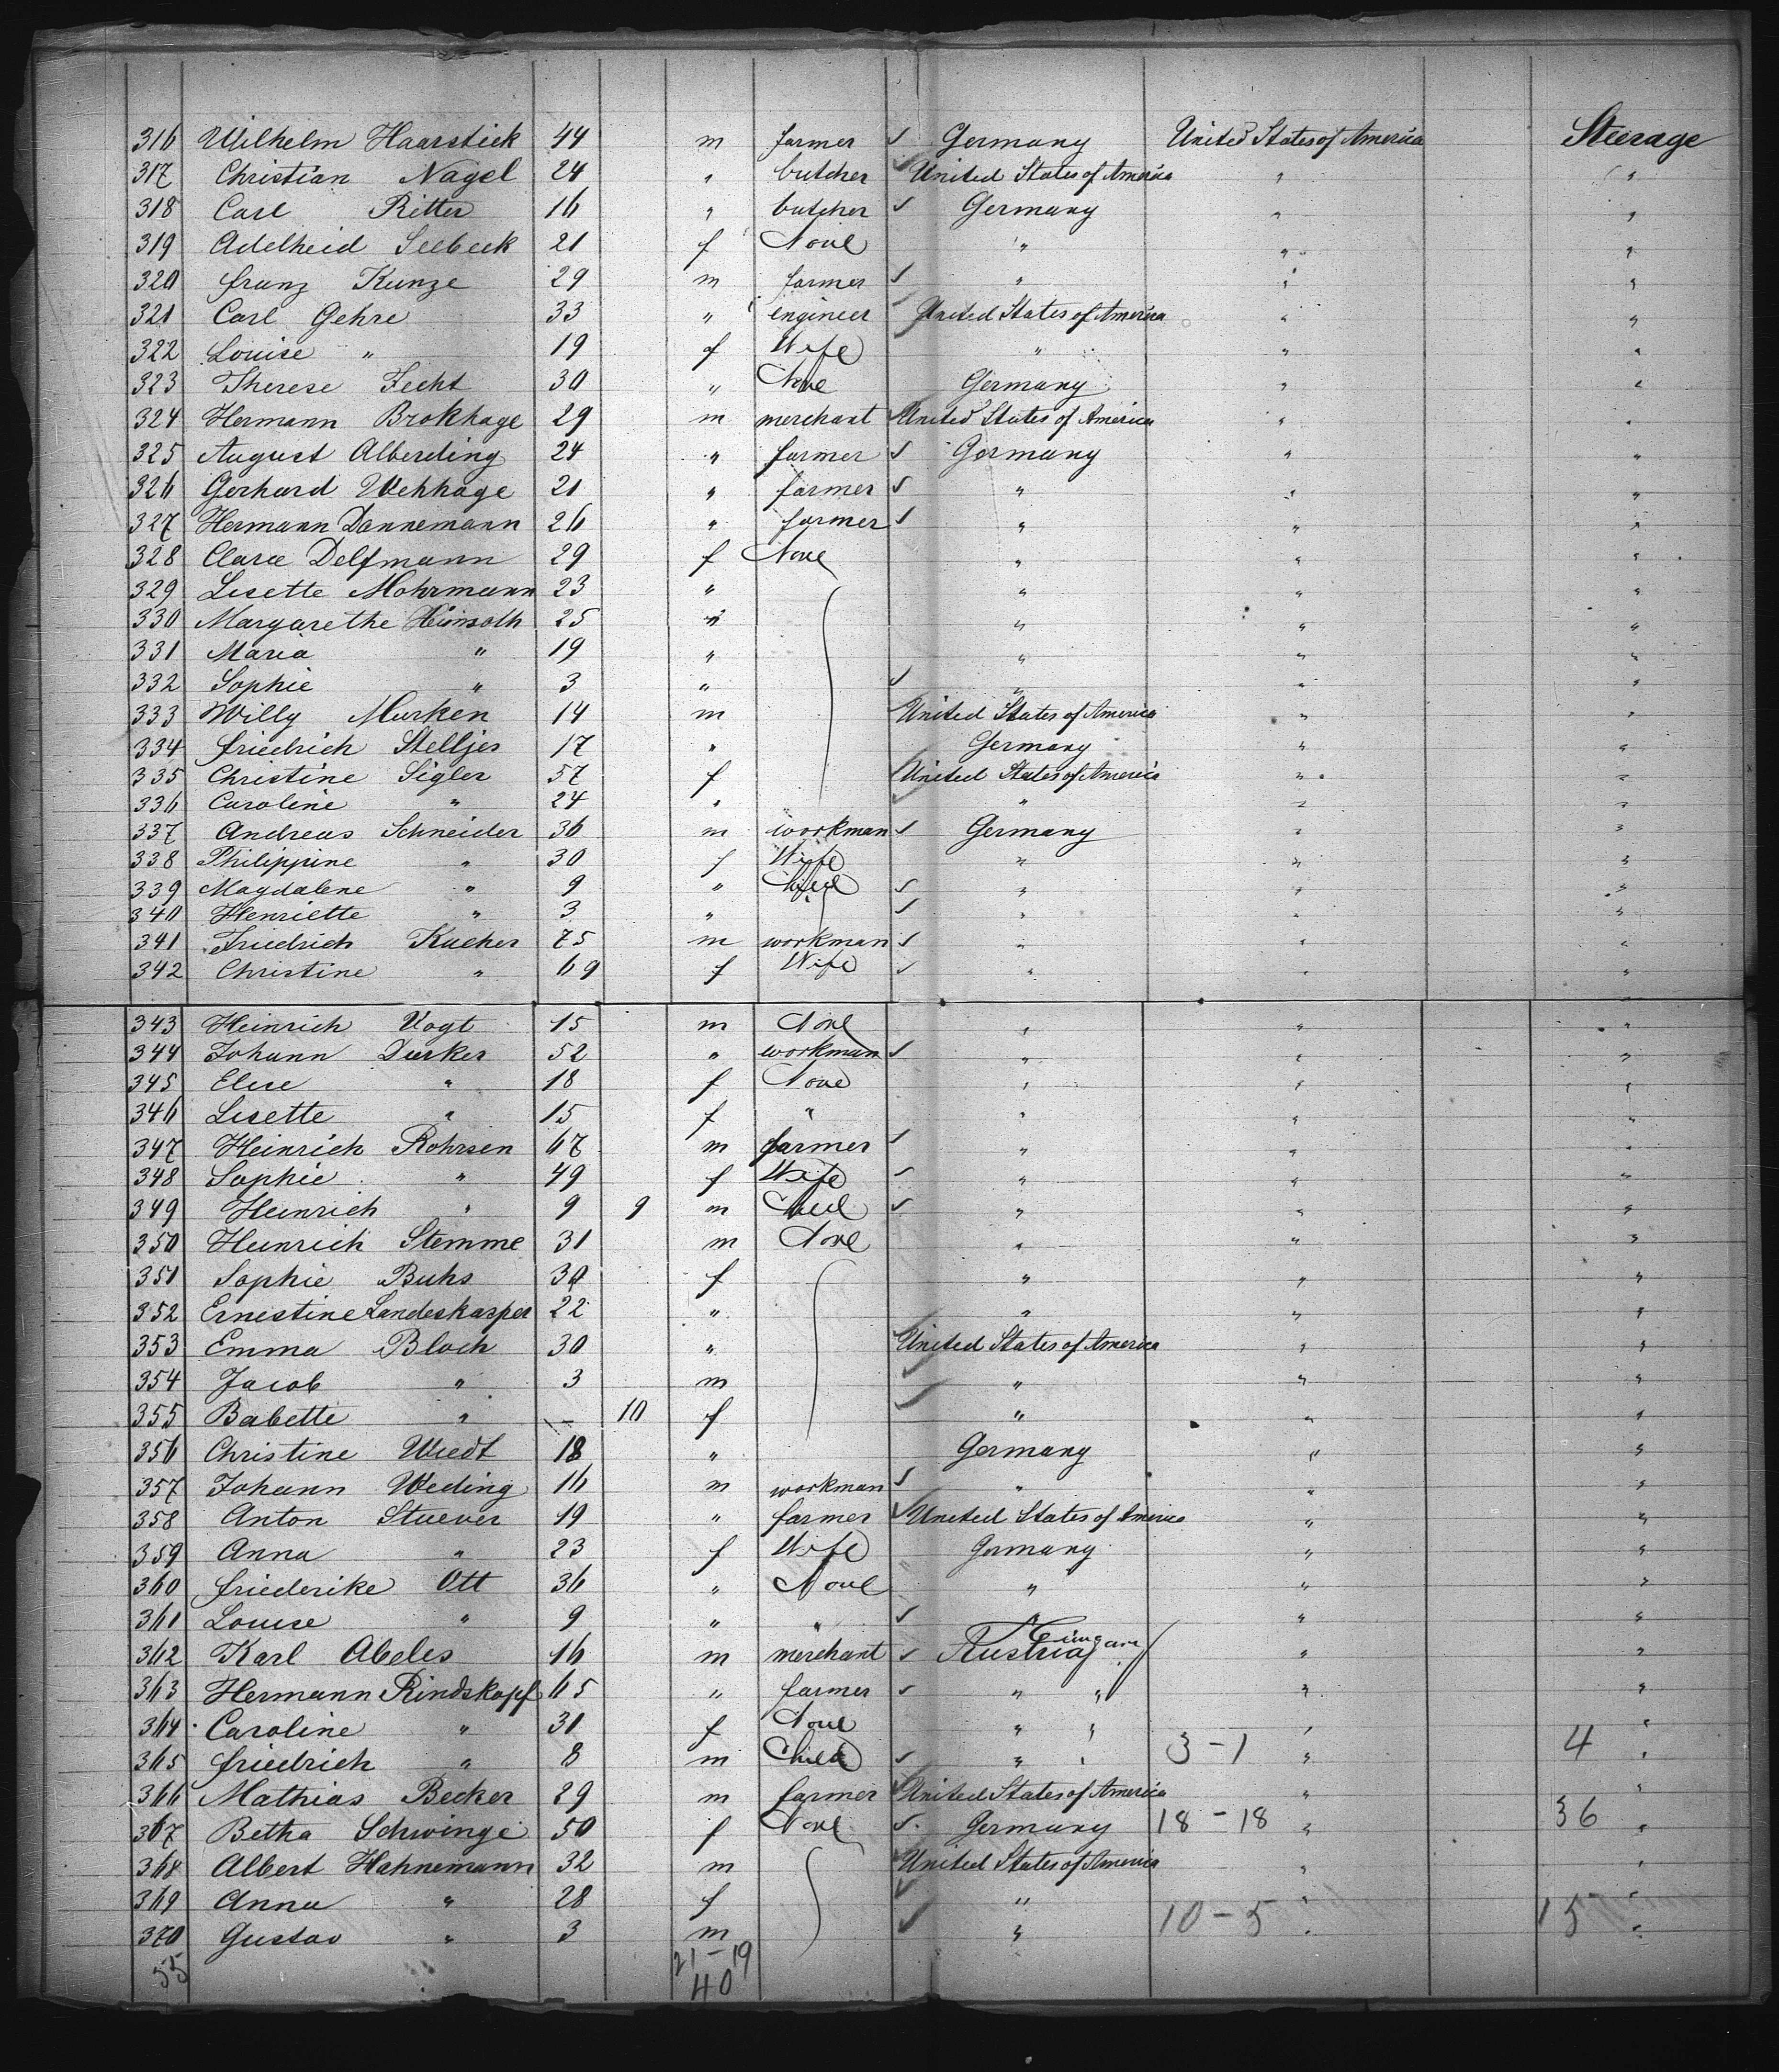 316 Wilhelm Haarstick 44 m farmer ✓ Germany United States of America Steerage
317 Christian Nagel 24 " butcher ✓ United States of America " "
318 Carl Ritter 16 " butcher ✓ Germany " "
319 Adelheid Seebeck 21 f None " " "
320 Franz Kunze 29 m farmer ✓ " " "
321 Carl Gehre 33 " engineer ✓ United States of America " "
322 Louise " 19 f Wife " " "
323 Therese Fecht 30 " None Germany " "
324 Hermann Brokhage 29 m merchant ✓ United States of America " "
325 August Alberding 24 " farmer ✓ Germany " "
326 Gerhard Wehhage 21 " farmer ✓ " " "
327 Hermann Dannemann 26 " farmer ✓ " " "
328 Clara Delfmann 29 f None " " "
329 Lisette Mohrmann 23 " " " "
330 Margarethe Heinsoth 25 " " " "
331 Maria " 19 " " " "
332 Sophie " 3 " ✓ " " "
333 Willy Murken 14 m United States of America " "
334 Friedrich Stelljes 17 " Germany " "
335 Christine Sigler 57 f United States of America " "
336 Caroline " 24 " ✓ " " "
337 Andreas Schneider 36 m workman ✓ Germany " "
338 Philippine " 30 f Wife " " "
339 Magdalene " 9 " Child ✓ " " "
340 Henriette " 3 " ✓ " " "
341 Friedrich Kucher 75 m workman ✓ " " "
342 Christine " 69 f Wife ✓ " " "
343 Heinrich Vogt 15 m None " " "
344 Johann Durker 52 " workman ✓ " " "
345 Elise " 18 f None " " "
346 Lisette " 15 f " " " "
347 Heinrich Rohrsen 67 m farmer ✓ " " "
348 Sophie " 49 f Wife ✓ " " "
349 Heinrich " 9 9 m Child ✓ " " "
350 Heinrich Stemme 31 m None " " "
351 Sophie Buhs 30 f " " "
352 Ernestine Landeskasper 22 " " " "
353 Emma Bloch 30 " United States of America " "
354 Jacob " 3 m ✓ " " "
355 Babette " — 10 f ✓ " " "
356 Christine Wredt 18 " Germany " "
357 Johann Weding 16 m workman ✓ " " "
358 Anton Stuever 19 " farmer ✓ United States of America " "
359 Anna " 23 f Wife Germany " "
360 Friederike Ott 36 " None " " "
361 Louise " 9 " " ✓ " " "
362 Karl Abeles 16 m merchant ✓ Austria " "
363 Hermann Rindskopf 65 " farmer ✓ " " " "
364 Caroline " 31 f None " " " "
365 Friedrich " 8 m Child ✓ " " 3-1 " 4 "
366 Mathias Becker 29 m farmer ✓ United States of America " "
367 Betha Schwinge 50 f None ✓ Germany 18-18 " 36 "
368 Albert Hahnemann 32 m ✓ United States of America " "
369 Anna " 28 f ✓ " " "
370 Gustav " 3 m ✓ " 10-5 " 15 "
55 21-19
40